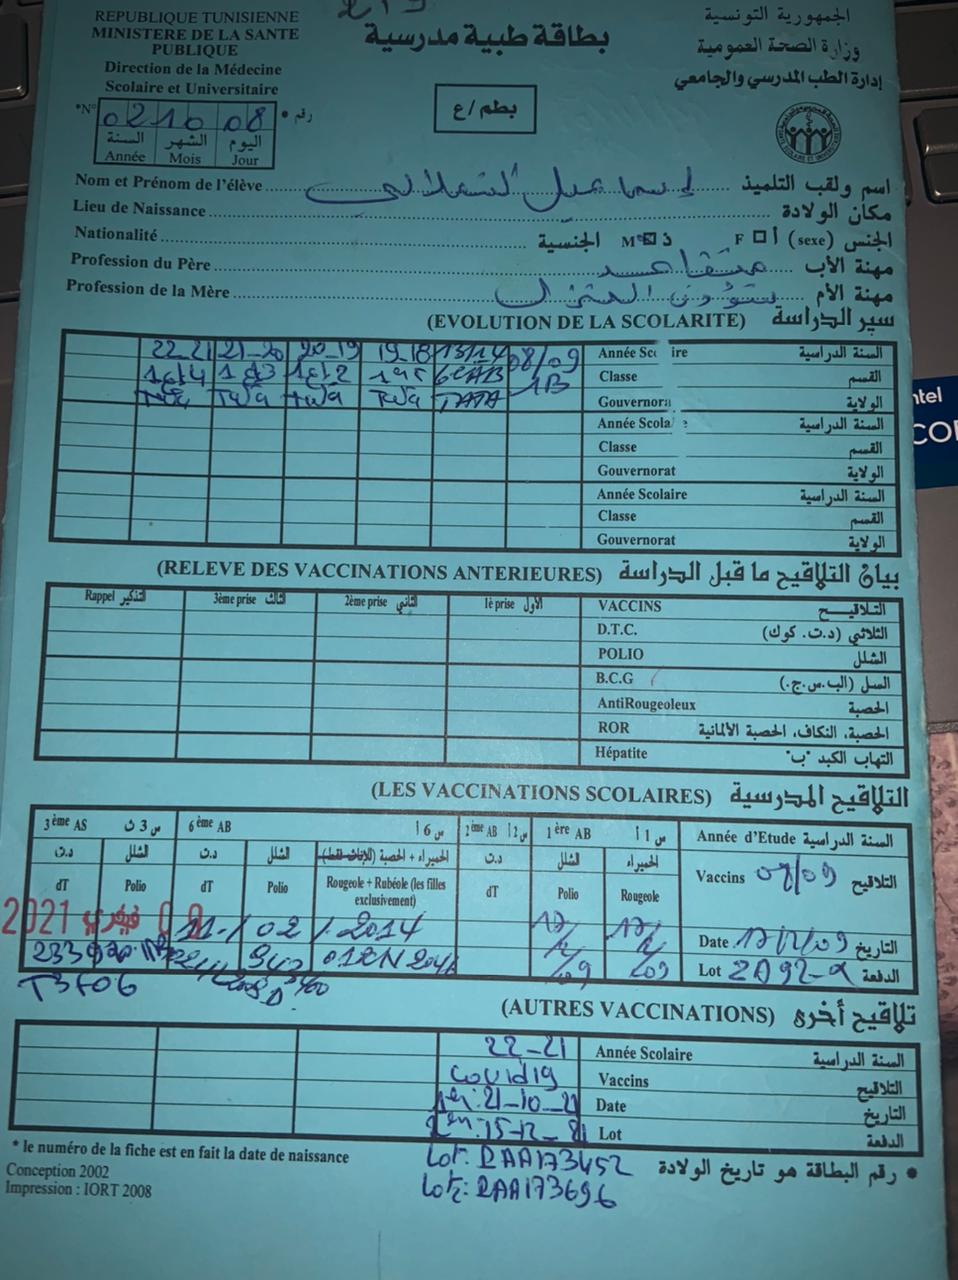 REPUBLIQUE TUNISIENNE
MINISTERE DE LA SANTE
PUBLIQUE
Direction de la Médecine
Scolaire et Universitaire
الجمهورية التونسية
وزارة الصحة العمومية
إدارة الطب المدرسي والجامعي
بطاقة طبية مدرسية
بطم/ع
*N° 02 10 08 رقم •
السنة الشهر اليوم
Année Mois Jour
Nom et Prénom de l'élève إسماعيل اسم ولقب التلميذ
Lieu de Naissance مكان الولادة
Nationalité الجنسية M ☒ ذ F □ أ (sexe) الجنس
Profession du Père متقاعد مهنة الأب
Profession de la Mère شؤون المنزل مهنة الأم
(EVOLUTION DE LA SCOLARITE) سير الدراسة
22-21 21-20 20-19 19-18 13/14 08/09 Année Sc ire السنة الدراسية
1B Classe القسم
TATA Gouvernora الولاية
Année Scola e السنة الدراسية
Classe القسم
Gouvernorat الولاية
Année Scolaire السنة الدراسية
Classe القسم
Gouvernorat الولاية
(RELEVE DES VACCINATIONS ANTERIEURES) بيان التلاقيح ما قبل الدراسة
Rappel التذكير 3ème prise الثالث 2ème prise الثاني 1è prise الأول VACCINS التلاقيح
D.T.C. الثلاثي (د.ت. كوك)
POLIO الشلل
B.C.G السل (الب.س.ج.)
AntiRougeoleux الحصبة
ROR الحصبة، النكاف، الحصبة الالمانية
Hépatite التهاب الكبد "ب"
(LES VACCINATIONS SCOLAIRES) التلاقيح المدرسية
3ème AS س 3 ث 6ème AB س 6 أ 2ème AB س 2 أ 1ère AB س 1 أ Année d'Etude السنة الدراسية
د.ت الشلل د.ت الشلل الحميراء + الحصبة (للإناث فقط) د.ت الشلل الحميراء Vaccins التلاقيح
dT Polio dT Polio Rougeole + Rubéole (les filles exclusivement) dT Polio Rougeole
فيفري 2021 11/02/2014 Date 17/12/09 التاريخ
Lot الدفعة
T3F06
(AUTRES VACCINATIONS) تلاقيح أخرى
22-21 Année Scolaire السنة الدراسية
Covid19 Vaccins التلاقيح
1er: 21-10-21 Date التاريخ
15-12-21 Lot الدفعة
* le numéro de la fiche est en fait la date de naissance
• رقم البطاقة هو تاريخ الولادة
Lot: RAA173452
Lot2: RAA173696
Conception 2002
Impression : IORT 2008
ntel
COR